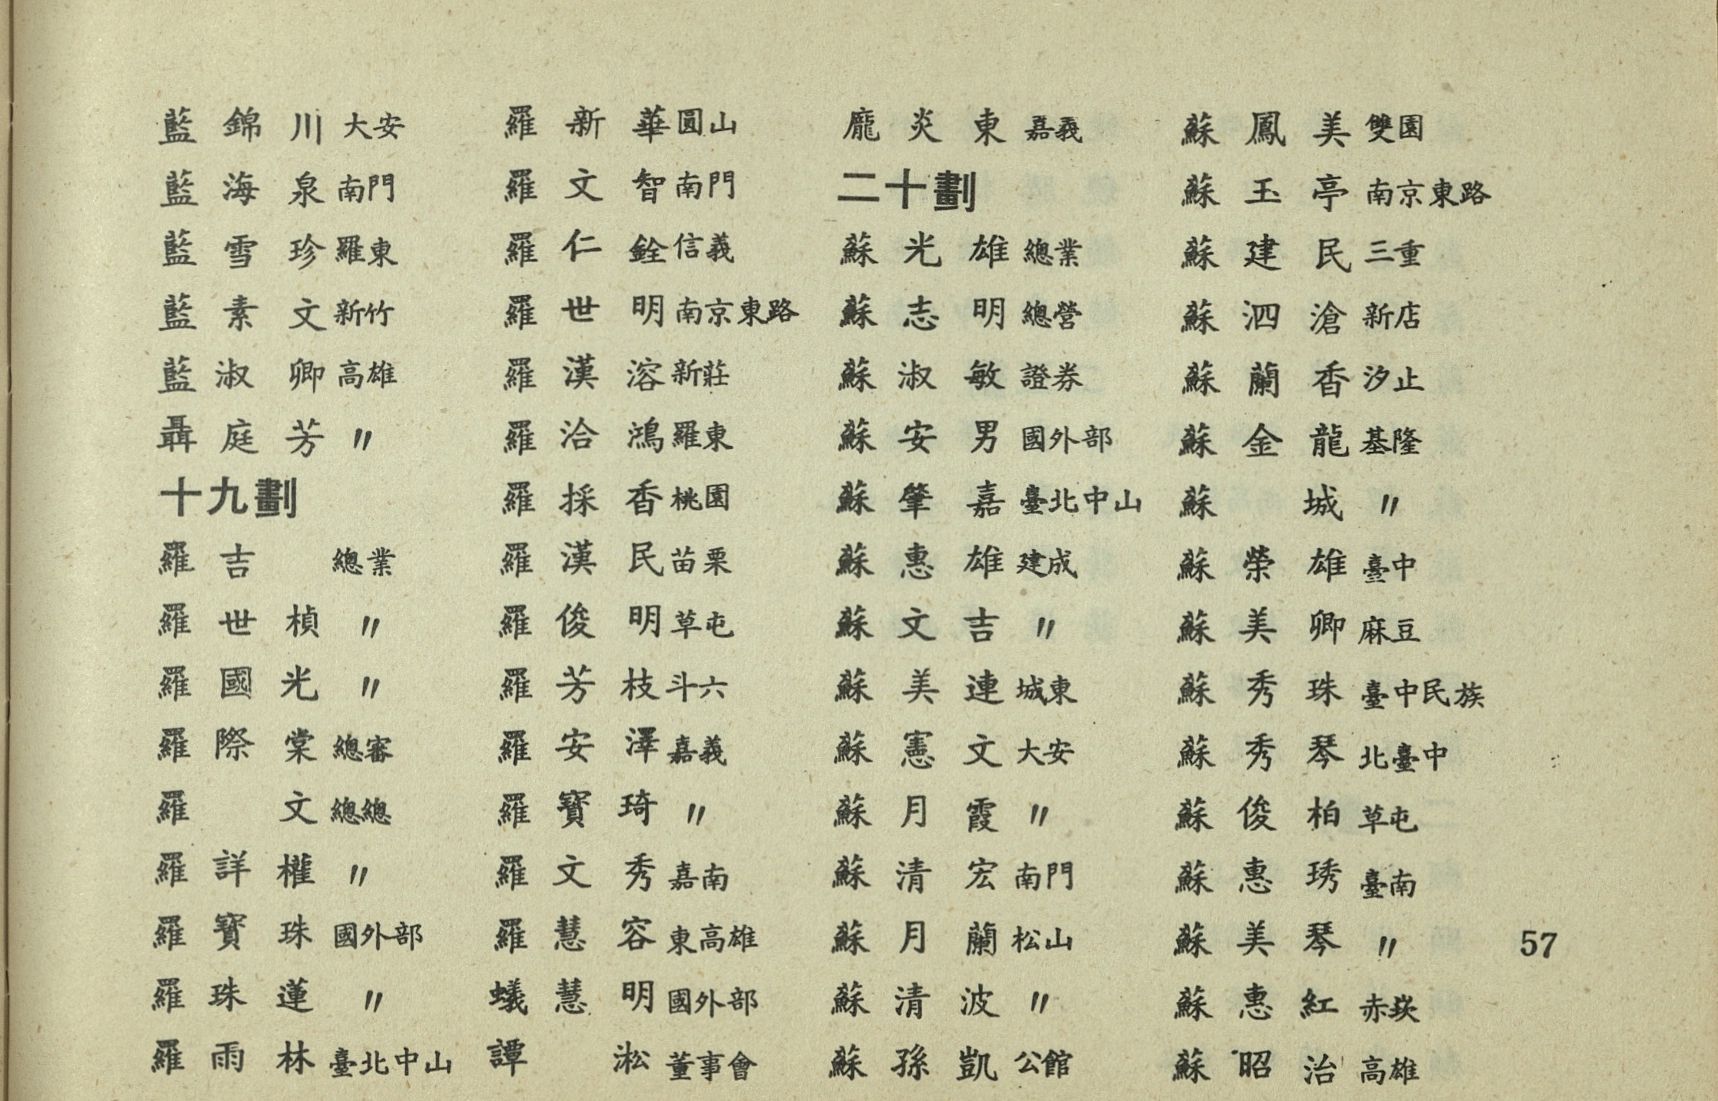 藍錦川 大安
藍海泉 南門
藍雪珍 羅東
藍素文 新竹
藍淑卿 高雄
聶庭芳 〃
十九劃
羅吉 總業
羅世楨 〃
羅國光 〃
羅際棠 總審
羅文 總總
羅詳權 〃
羅寶珠 國外部
羅珠蓮 〃
羅雨林 臺北中山
羅新華 圓山
羅文智 南門
羅仁銓 信義
羅世明 南京東路
羅漢溶 新莊
羅洽鴻 羅東
羅採香 桃園
羅漢民 苗栗
羅俊明 草屯
羅芳枝 斗六
羅安澤 嘉義
羅寶琦 〃
羅文秀 嘉南
羅慧容 東高雄
蟻慧明 國外部
譚淞 董事會
龐炎東 嘉義
二十劃
蘇光雄 總業
蘇志明 總營
蘇淑敏 證券
蘇安男 國外部
蘇肇嘉 臺北中山
蘇惠雄 建成
蘇文吉 〃
蘇美連 城東
蘇憲文 大安
蘇月霞 〃
蘇清宏 南門
蘇月蘭 松山
蘇清波 〃
蘇孫凱 公館
蘇鳳美 雙園
蘇玉亭 南京東路
蘇建民 三重
蘇泗滄 新店
蘇蘭香 汐止
蘇金龍 基隆
蘇城 〃
蘇榮雄 臺中
蘇美卿 麻豆
蘇秀珠 臺中民族
蘇秀琴 北臺中
蘇俊柏 草屯
蘇惠琇 臺南
蘇美琴 〃
蘇惠紅 赤崁
蘇昭治 高雄
57